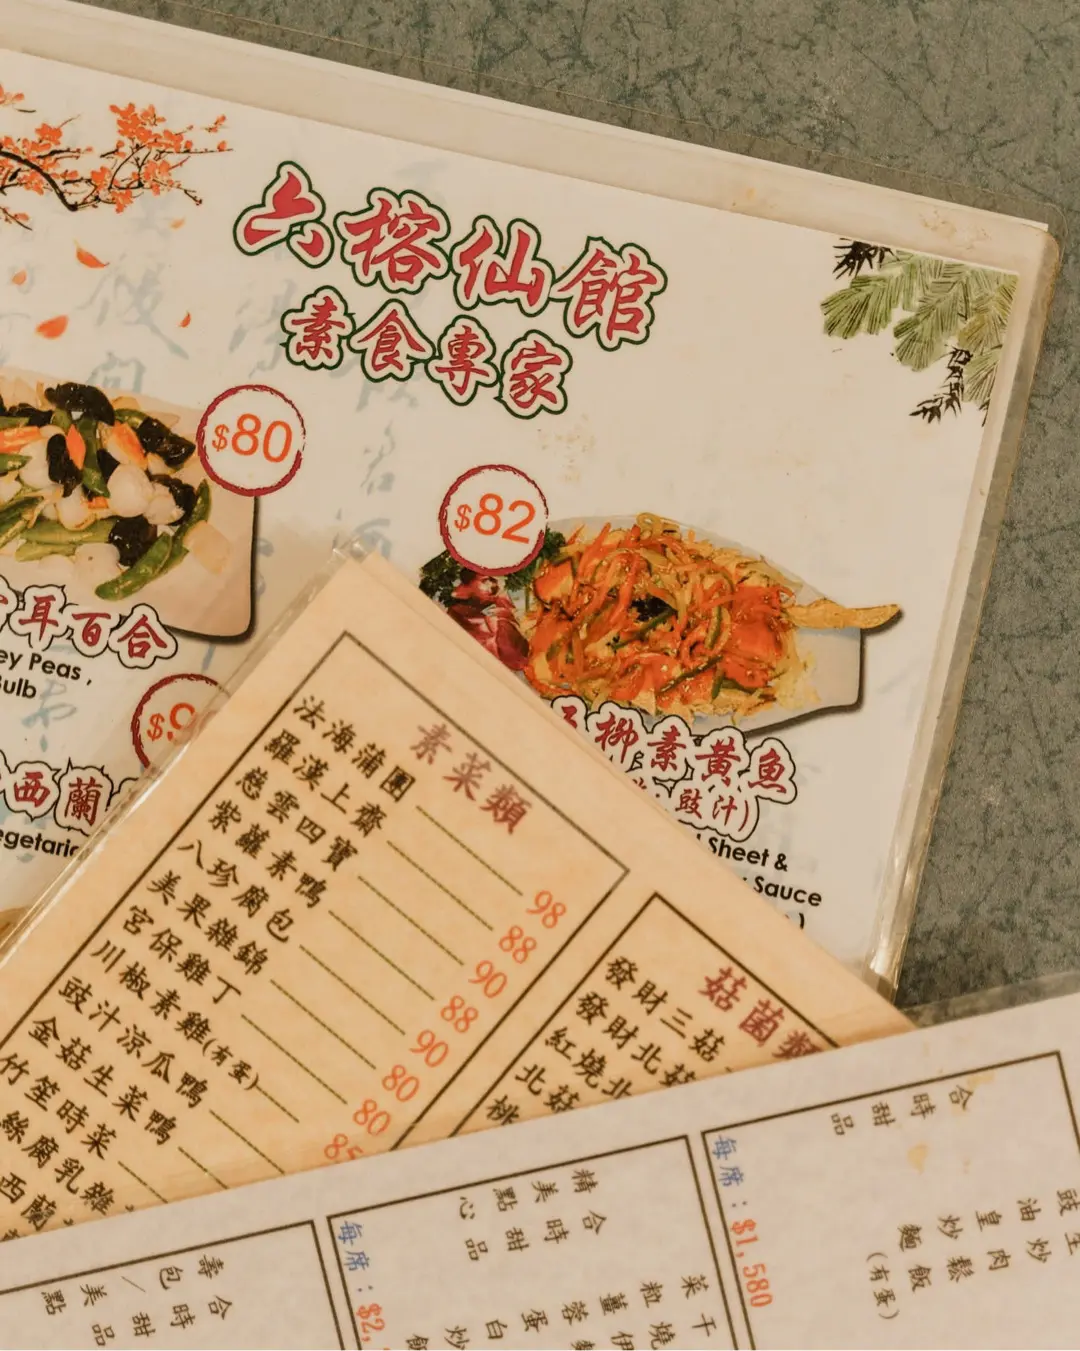 六榕仙館
素食專家
$80
$82
耳百合
ey Peas ,
Bulb
$9
西蘭
egetaric
柳素黃魚
豉汁)
Sheet &
Sauce
)
素菜類
法海蒲團 98
羅漢上齋 88
慈雲四寶 90
紫蘿素鴨 88
八珍腐包 90
美果雜錦 80
宮保雞丁 80
川椒素雞(有蛋) 85
豉汁涼瓜鴨
金菇生菜鴨
竹笙時菜
絲腐乳雜
西蘭
菇菌類
發財三菇
發財北菇
紅燒北
北菇
桃
合時甜品
每席：$1,580
生炒
豉油皇炒麵
肉鬆飯
(有蛋)
合時甜品
精美點心
每席：$2,
干燒伊麵
菜粒薑蓉蛋白炒飯
合時甜品
壽包/美點